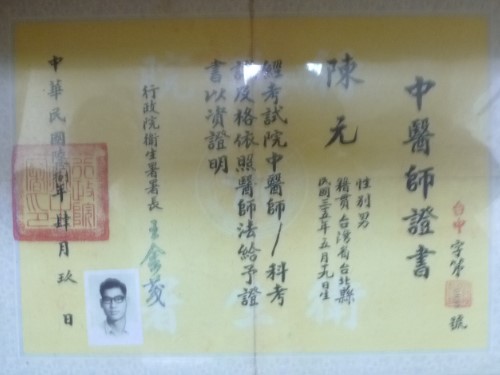 中醫師證書
台中字第
號
陳元
性別男
籍貫台灣省台北縣
民國三五年五月九日生
經考試院中醫師
科考
試及格依照醫師法給予證
書以資證明
行政院衛生署署長
王金茂
中華民國陸捌年肆月玖日
行政院衛生署印